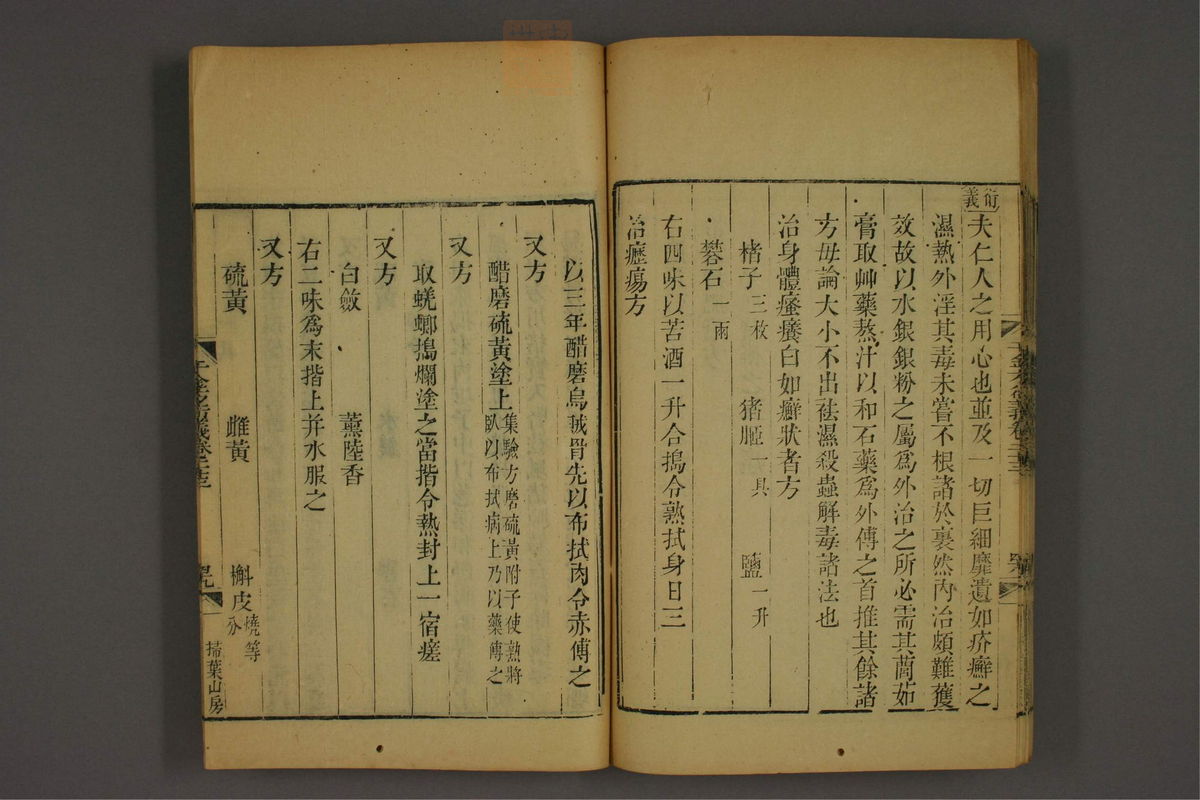 衍義
夫仁人之用心也並及一切巨細靡遺如疥癬之
濕熱外淫其毒未嘗不根諸於裏然內治頗難獲
效故以水銀銀粉之屬爲外治之所必需其藺茹
膏取艸藥熬汁以和石藥爲外傅之首推其餘諸
方毋論大小不出祛濕殺蟲解毒諸法也
治身體瘙癢白如癬狀者方
楮子三枚 猪胰一具 鹽一升
礬石一兩
右四味以苦酒一升合搗令熟拭身日三
治癧瘍方
以三年醋磨烏賊骨先以布拭肉令赤傅之
又方
醋磨硫黃塗上集驗方磨硫黃附子使熟將
臥以布拭病上乃以藥傅之
又方
取蜣螂搗爛塗之當揩令熱封上一宿瘥
又方
白蘞 薰陸香
右二味爲末揩上并水服之
又方
硫黃 雌黃 槲皮燒等
分
千金方衍義卷二十三
掃葉山房